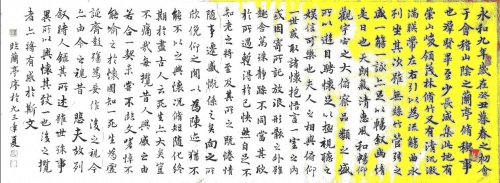 永和九年歲在癸丑暮春之初會
于會稽山陰之蘭亭脩禊事
也群賢畢至少長咸集此地有
崇山峻領茂林脩竹又有清流激
湍暎帶左右引以為流觴曲水
列坐其次雖無絲竹管弦之
盛一觴一詠亦足以暢敘幽情
是日也天朗氣清惠風和暢仰
觀宇宙之大俯察品類之盛
所以遊目騁懷足以極視聽之
娛信可樂也夫人之相與俯仰一
世或取諸懷抱悟言一室之內
或因寄所託放浪形骸之外雖
趣舍萬殊靜躁不同當其欣
於所遇暫得於己快然自足不
知老之將至及其所之既惓情
隨事遷感慨係之矣向之所
欣俛仰之間以為陳迹猶不
能不以之興懷況脩短隨化終
期於盡古人云死生亦大矣豈
不痛哉每攬昔人興感之由
若合一契未嘗不臨文嗟悼不
能喻之於懷固知一死生為虛
誕齊彭殤為妄作後之視今
亦由今之視昔悲夫故列
敘時人錄其所述雖世殊事
異所以興懷其致一也後之攬
者亦將有感於斯文
臨蘭亭序於九三年夏